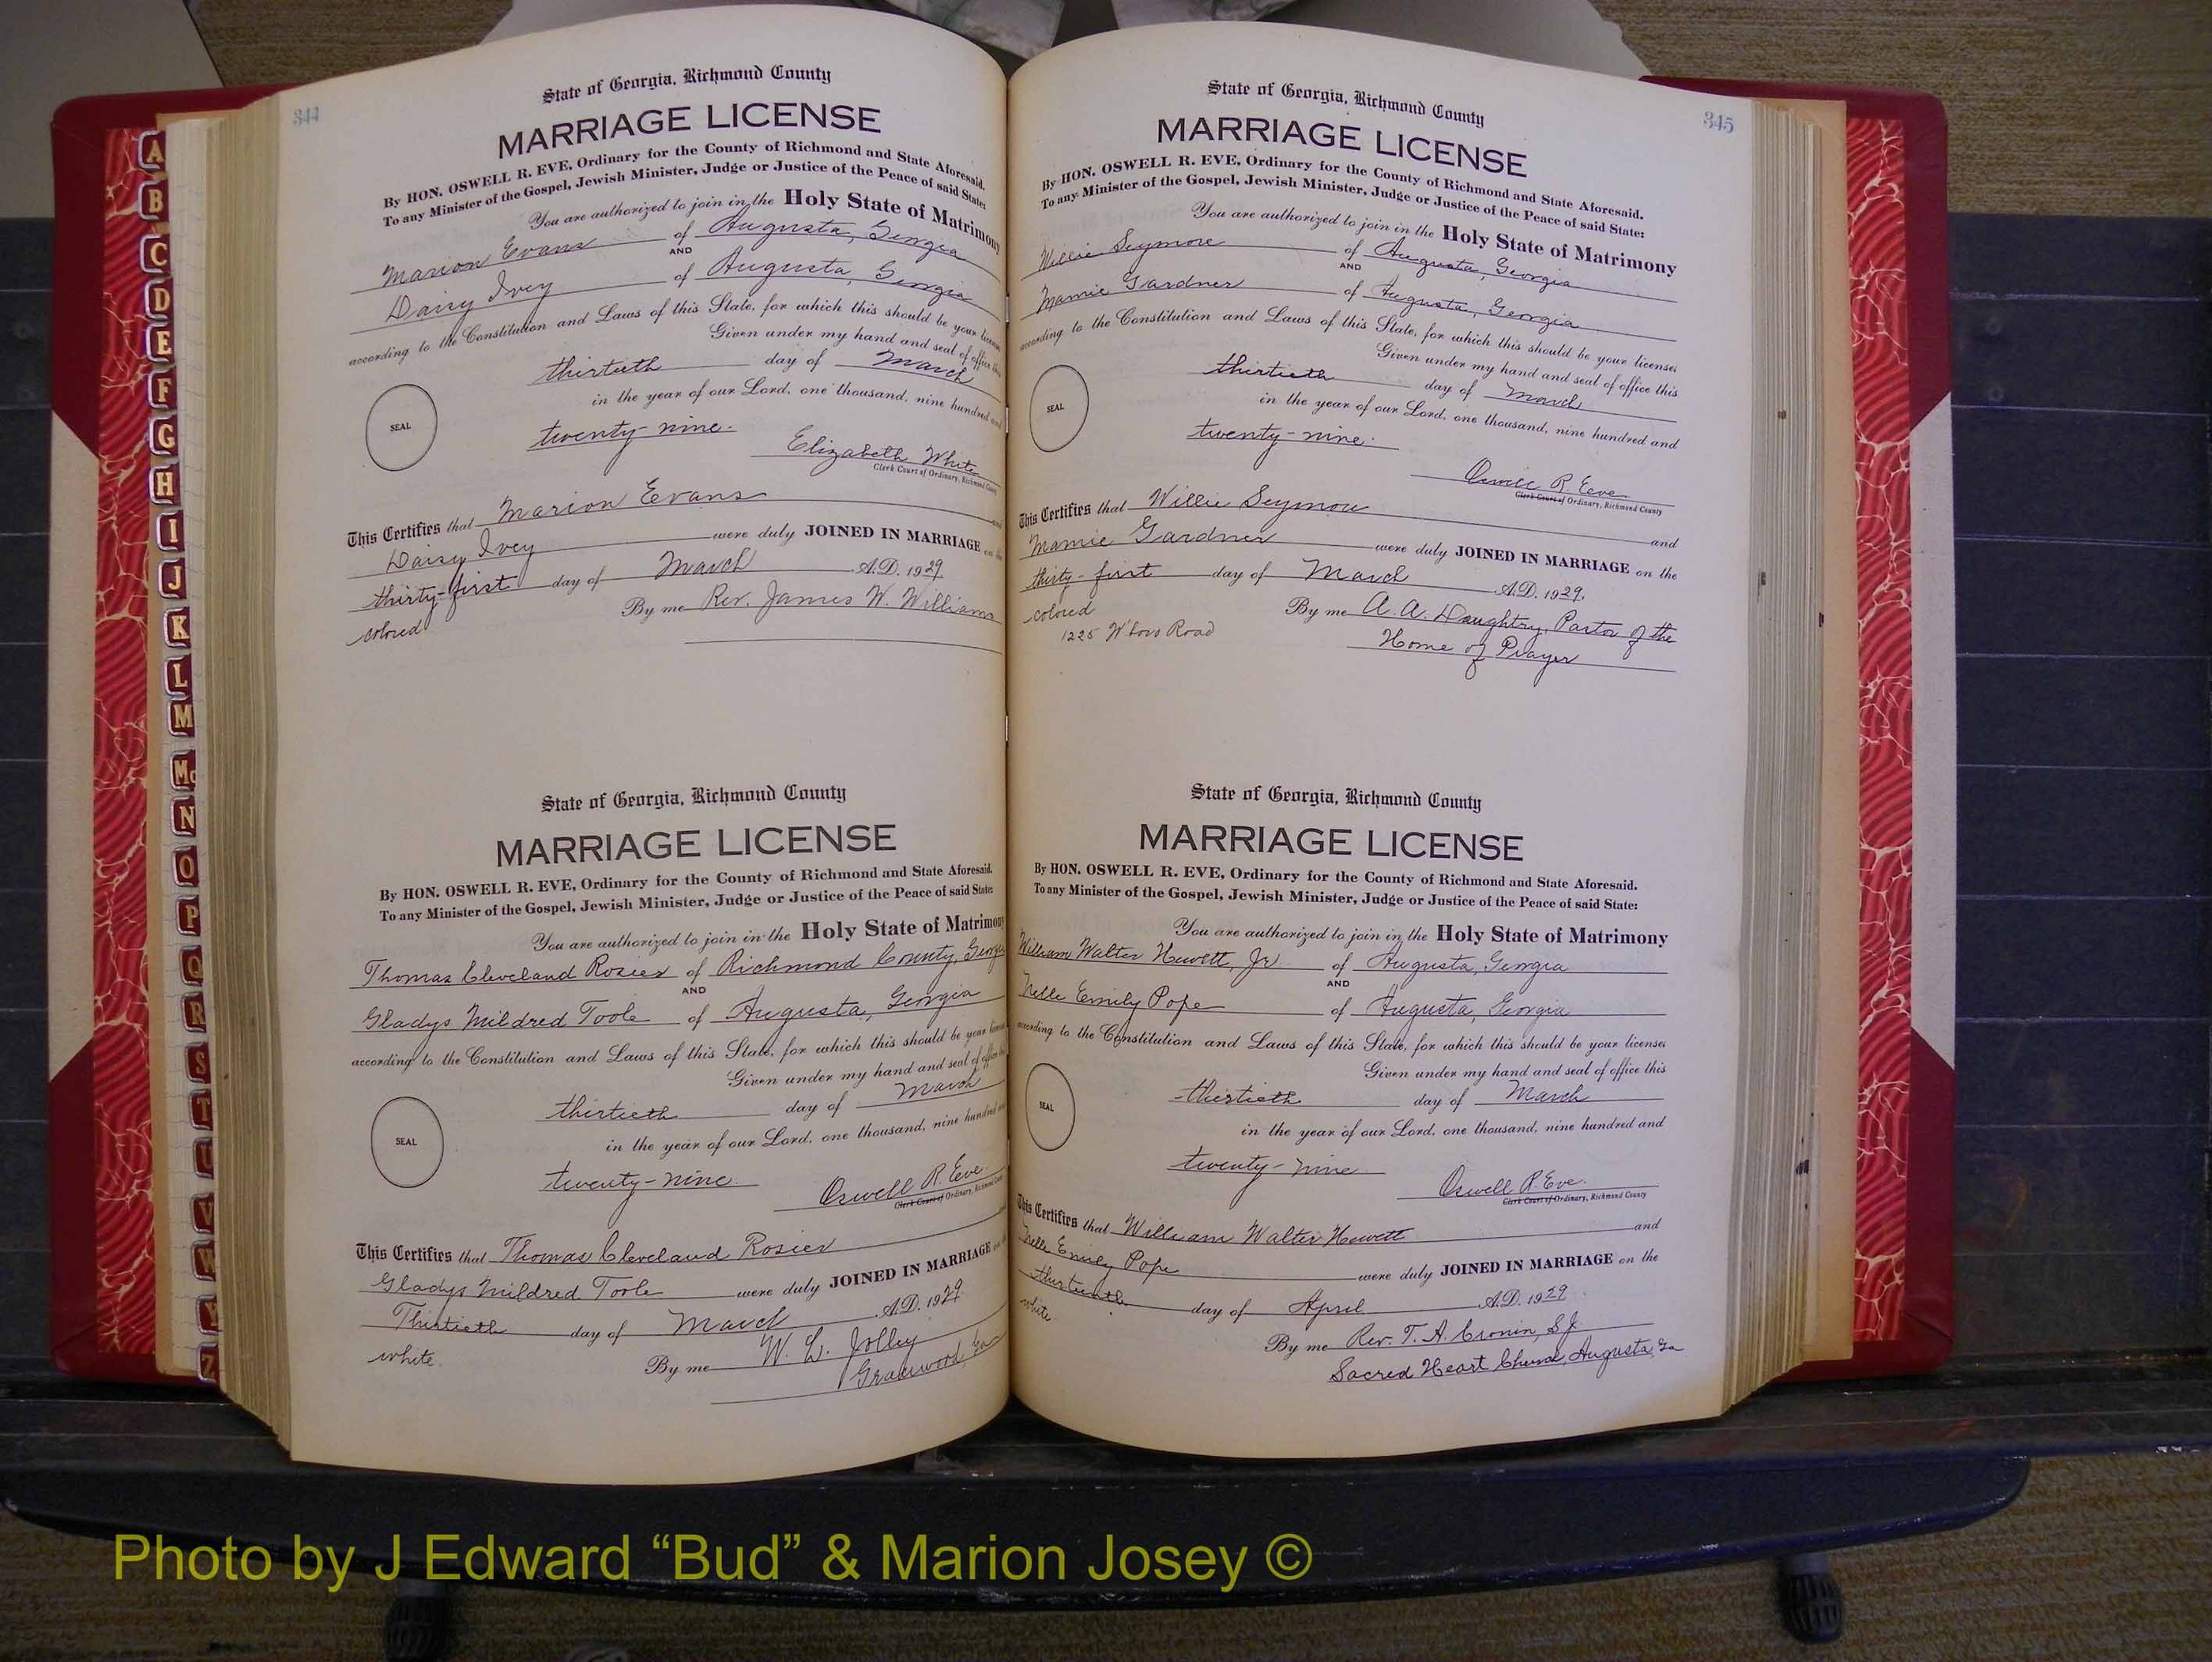 344
State of Georgia, Richmond County
MARRIAGE LICENSE
By HON. OSWELL R. EVE, Ordinary for the County of Richmond and State Aforesaid.
To any Minister of the Gospel, Jewish Minister, Judge or Justice of the Peace of said State:
You are authorized to join in the Holy State of Matrimony
Marion Evans of Augusta, Georgia
AND
Daisy Ivey of Augusta, Georgia
according to the Constitution and Laws of this State, for which this should be your license
Given under my hand and seal of office this
thirtieth day of March
in the year of our Lord, one thousand, nine hundred and
SEAL
twenty-nine.
Elizabeth White
Clerk Court of Ordinary, Richmond County
This Certifies that Marion Evans and
Daisy Ivey were duly JOINED IN MARRIAGE on the
thirty-first day of March A.D. 1929
colored By me Rev. James W. Williams
State of Georgia, Richmond County
MARRIAGE LICENSE
By HON. OSWELL R. EVE, Ordinary for the County of Richmond and State Aforesaid.
To any Minister of the Gospel, Jewish Minister, Judge or Justice of the Peace of said State:
You are authorized to join in the Holy State of Matrimony
Thomas Cleveland Rosier of Richmond County, Georgia
AND
Gladys Mildred Toole of Augusta, Georgia
according to the Constitution and Laws of this State, for which this should be your license
Given under my hand and seal of office this
thirtieth day of March
SEAL
in the year of our Lord, one thousand, nine hundred and
twenty-nine.
Oswell R. Eve
Clerk Court of Ordinary, Richmond County
This Certifies that Thomas Cleveland Rosier
Gladys Mildred Toole were duly JOINED IN MARRIAGE on the
Thirtieth day of March A.D. 1929
white. By me W. L. Jolley
345
State of Georgia, Richmond County
MARRIAGE LICENSE
By HON. OSWELL R. EVE, Ordinary for the County of Richmond and State Aforesaid.
To any Minister of the Gospel, Jewish Minister, Judge or Justice of the Peace of said State:
You are authorized to join in the Holy State of Matrimony
Willie Seymore of Augusta, Georgia
AND
Mamie Gardner of Augusta, Georgia
according to the Constitution and Laws of this State, for which this should be your license
Given under my hand and seal of office this
thirtieth day of March
SEAL
in the year of our Lord, one thousand, nine hundred and
twenty-nine.
Oswell R. Eve
Clerk Court of Ordinary, Richmond County
This Certifies that Willie Seymou and
Mamie Gardner were duly JOINED IN MARRIAGE on the
thirty-first day of March A.D. 1929.
colored By me A. A. Daughtry, Pastor of the
1225 Road
Home of Prayer
State of Georgia, Richmond County
MARRIAGE LICENSE
By HON. OSWELL R. EVE, Ordinary for the County of Richmond and State Aforesaid.
To any Minister of the Gospel, Jewish Minister, Judge or Justice of the Peace of said State:
You are authorized to join in the Holy State of Matrimony
William Walter Hewett, Jr. of Augusta, Georgia
AND
Nelle Emily Pope of Augusta, Georgia
according to the Constitution and Laws of this State, for which this should be your license
Given under my hand and seal of office this
SEAL
thirtieth day of March
in the year of our Lord, one thousand, nine hundred and
twenty-nine
Oswell R. Eve.
Clerk Court of Ordinary, Richmond County
This Certifies that William Walter Hewett and
Nelle Emily Pope were duly JOINED IN MARRIAGE on the
day of April A.D. 1929
white.
By me Rev. T. A. Cronin, S.J.
Sacred Heart Church, Augusta, Ga
A
B
C
D
E
F
G
H
I
J
K
L
M
Mc
N
O
P
Q
R
S
T
U
V
W
Y
Z
Photo by J Edward “Bud” & Marion Josey ©